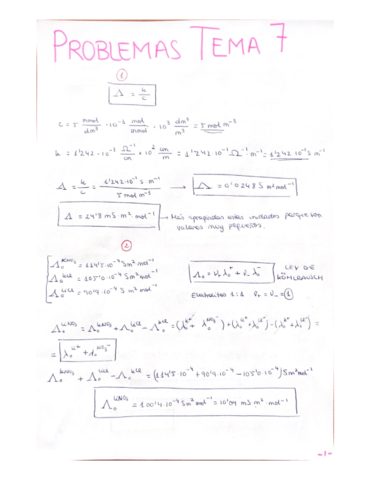 PROBLEMAS TEMA 7
①
Λ = k/c
c = 5 mmol/dm³ · 10⁻³ mol/mmol · 10³ dm³/m³ = 5 mol m⁻³
k = 1'242 · 10⁻³ Ω⁻¹/cm · 10² cm/m = 1'242 · 10⁻¹ Ω⁻¹ · m⁻¹ = 1'242 · 10⁻¹ S m⁻¹
Λ = k/c = 1'242 · 10⁻¹ S · m⁻¹ / 5 mol m⁻³ → Λ = 0'0248 S m² mol⁻¹
Λ = 24'8 mS m² · mol⁻¹ → Más apropiadas estas unidades porque son
valores muy pequeños.
②
Λ₀ᴷᴺᴼ³ = 114'5 · 10⁻⁴ S m² mol⁻¹
Λ₀ᴷᶜˡ = 105'0 · 10⁻⁴ S m² mol⁻¹
Λ₀ᴸⁱᶜˡ = 90'9 · 10⁻⁴ S m² mol⁻¹
Λ₀ = ν₊ λ₀⁺ + ν₋ λ₀⁻
LEY DE
KOHLRAUSCH
Electrolito 1:1 ν₊ = ν₋ = 1
Λ₀ᴸⁱᴺᴼ³ = Λ₀ᴷᴺᴼ³ + Λ₀ᴸⁱᶜˡ − Λ₀ᴷᶜˡ = (λ₀ᴷ⁺ + λ₀ᴺᴼ³⁻) + (λ₀ᴸⁱ⁺ + λ₀ᶜˡ⁻) − (λ₀ᴷ⁺ + λ₀ᶜˡ⁻) =
= λ₀ᴸⁱ⁺ + λ₀ᴺᴼ³⁻
Λ₀ᴷᴺᴼ³ + Λ₀ᴸⁱᶜˡ − Λ₀ᴷᶜˡ = (114'5 · 10⁻⁴ + 90'9 · 10⁻⁴ − 105'0 · 10⁻⁴) S m² mol⁻¹
Λ₀ᴸⁱᴺᴼ³ = 100'4 · 10⁻⁴ S m² mol⁻¹ = 10'04 mS m² · mol⁻¹
-1-